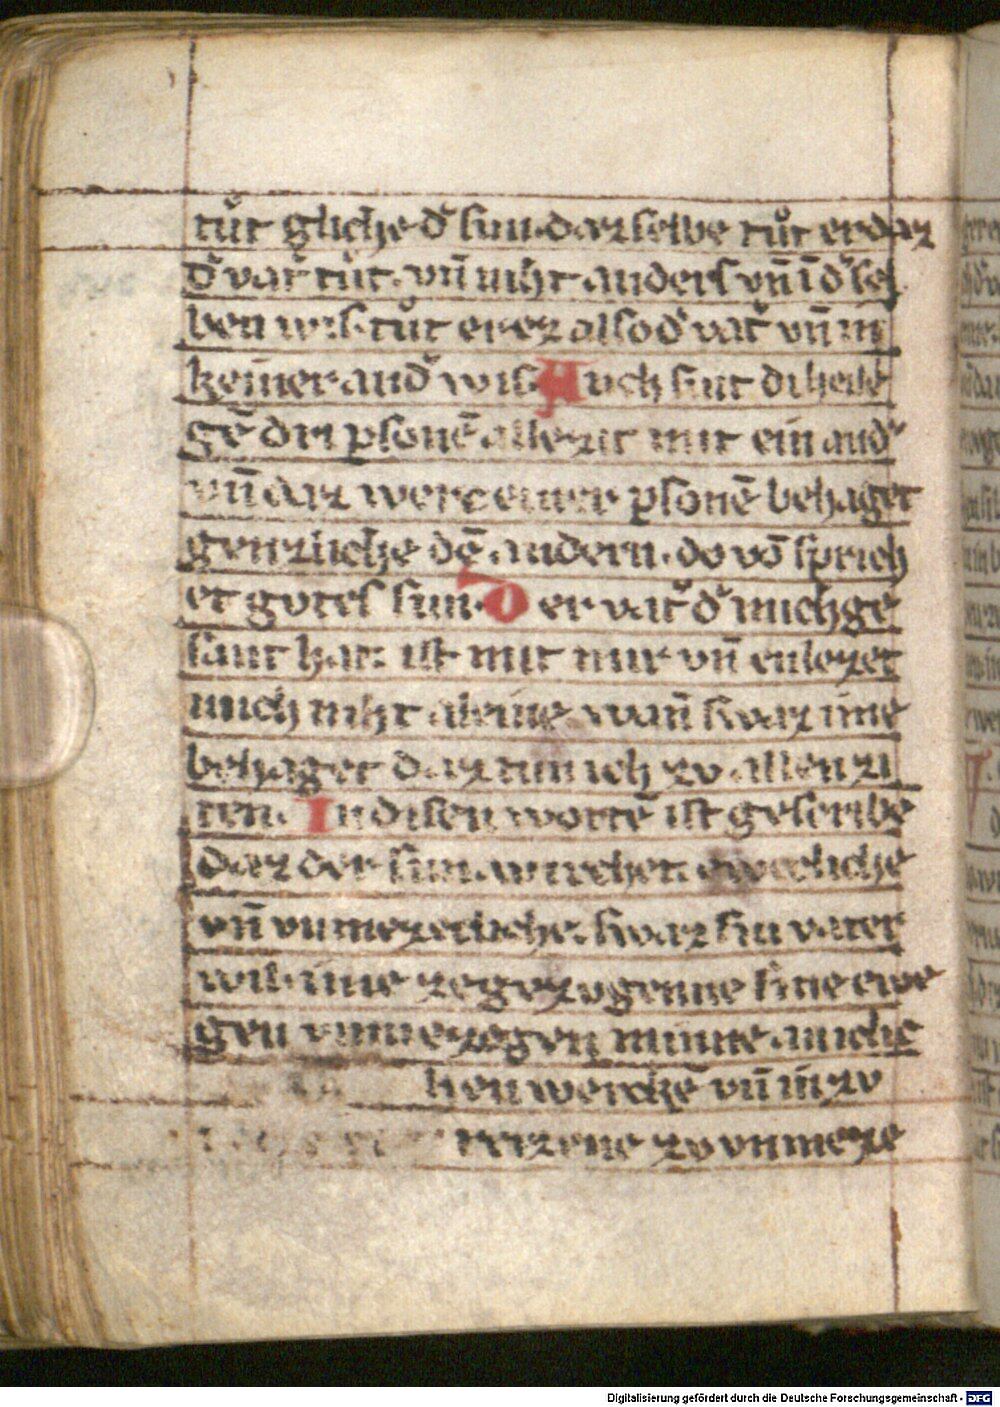 tůt gliche d᾽ sun. daz selbe tůt er daz
d᾽ vat᾽ tůt. vn̄ niht anders vn̄ ī d᾽ sel
ben wis. tůt er ez also d᾽ vat᾽ vn̄ in
keiner and᾽ wis. Auch sint di heile
gē dri psonē alle zit mit ein and᾽
vn̄ daz werc einer psonē behaget
genzliche dē andern. do vō sprich
et gotes sun. Der vat᾽ d᾽ mich ge
sant hat. ist mit mir vn̄ enlezet
mich niht aleine wan̄ swaz ime
behaget daz tun ich zv allen zi
ten. In disen wortē ist gescribē
daz der sun. wirchet. ewecliche
vn̄ vnmezecliche. swaz sin vater
wil. ime ze gezogenne sine ewe
gen vnmezegen minne an iclic
hen werckē vn̄ in zv
reizene zv vnmeze